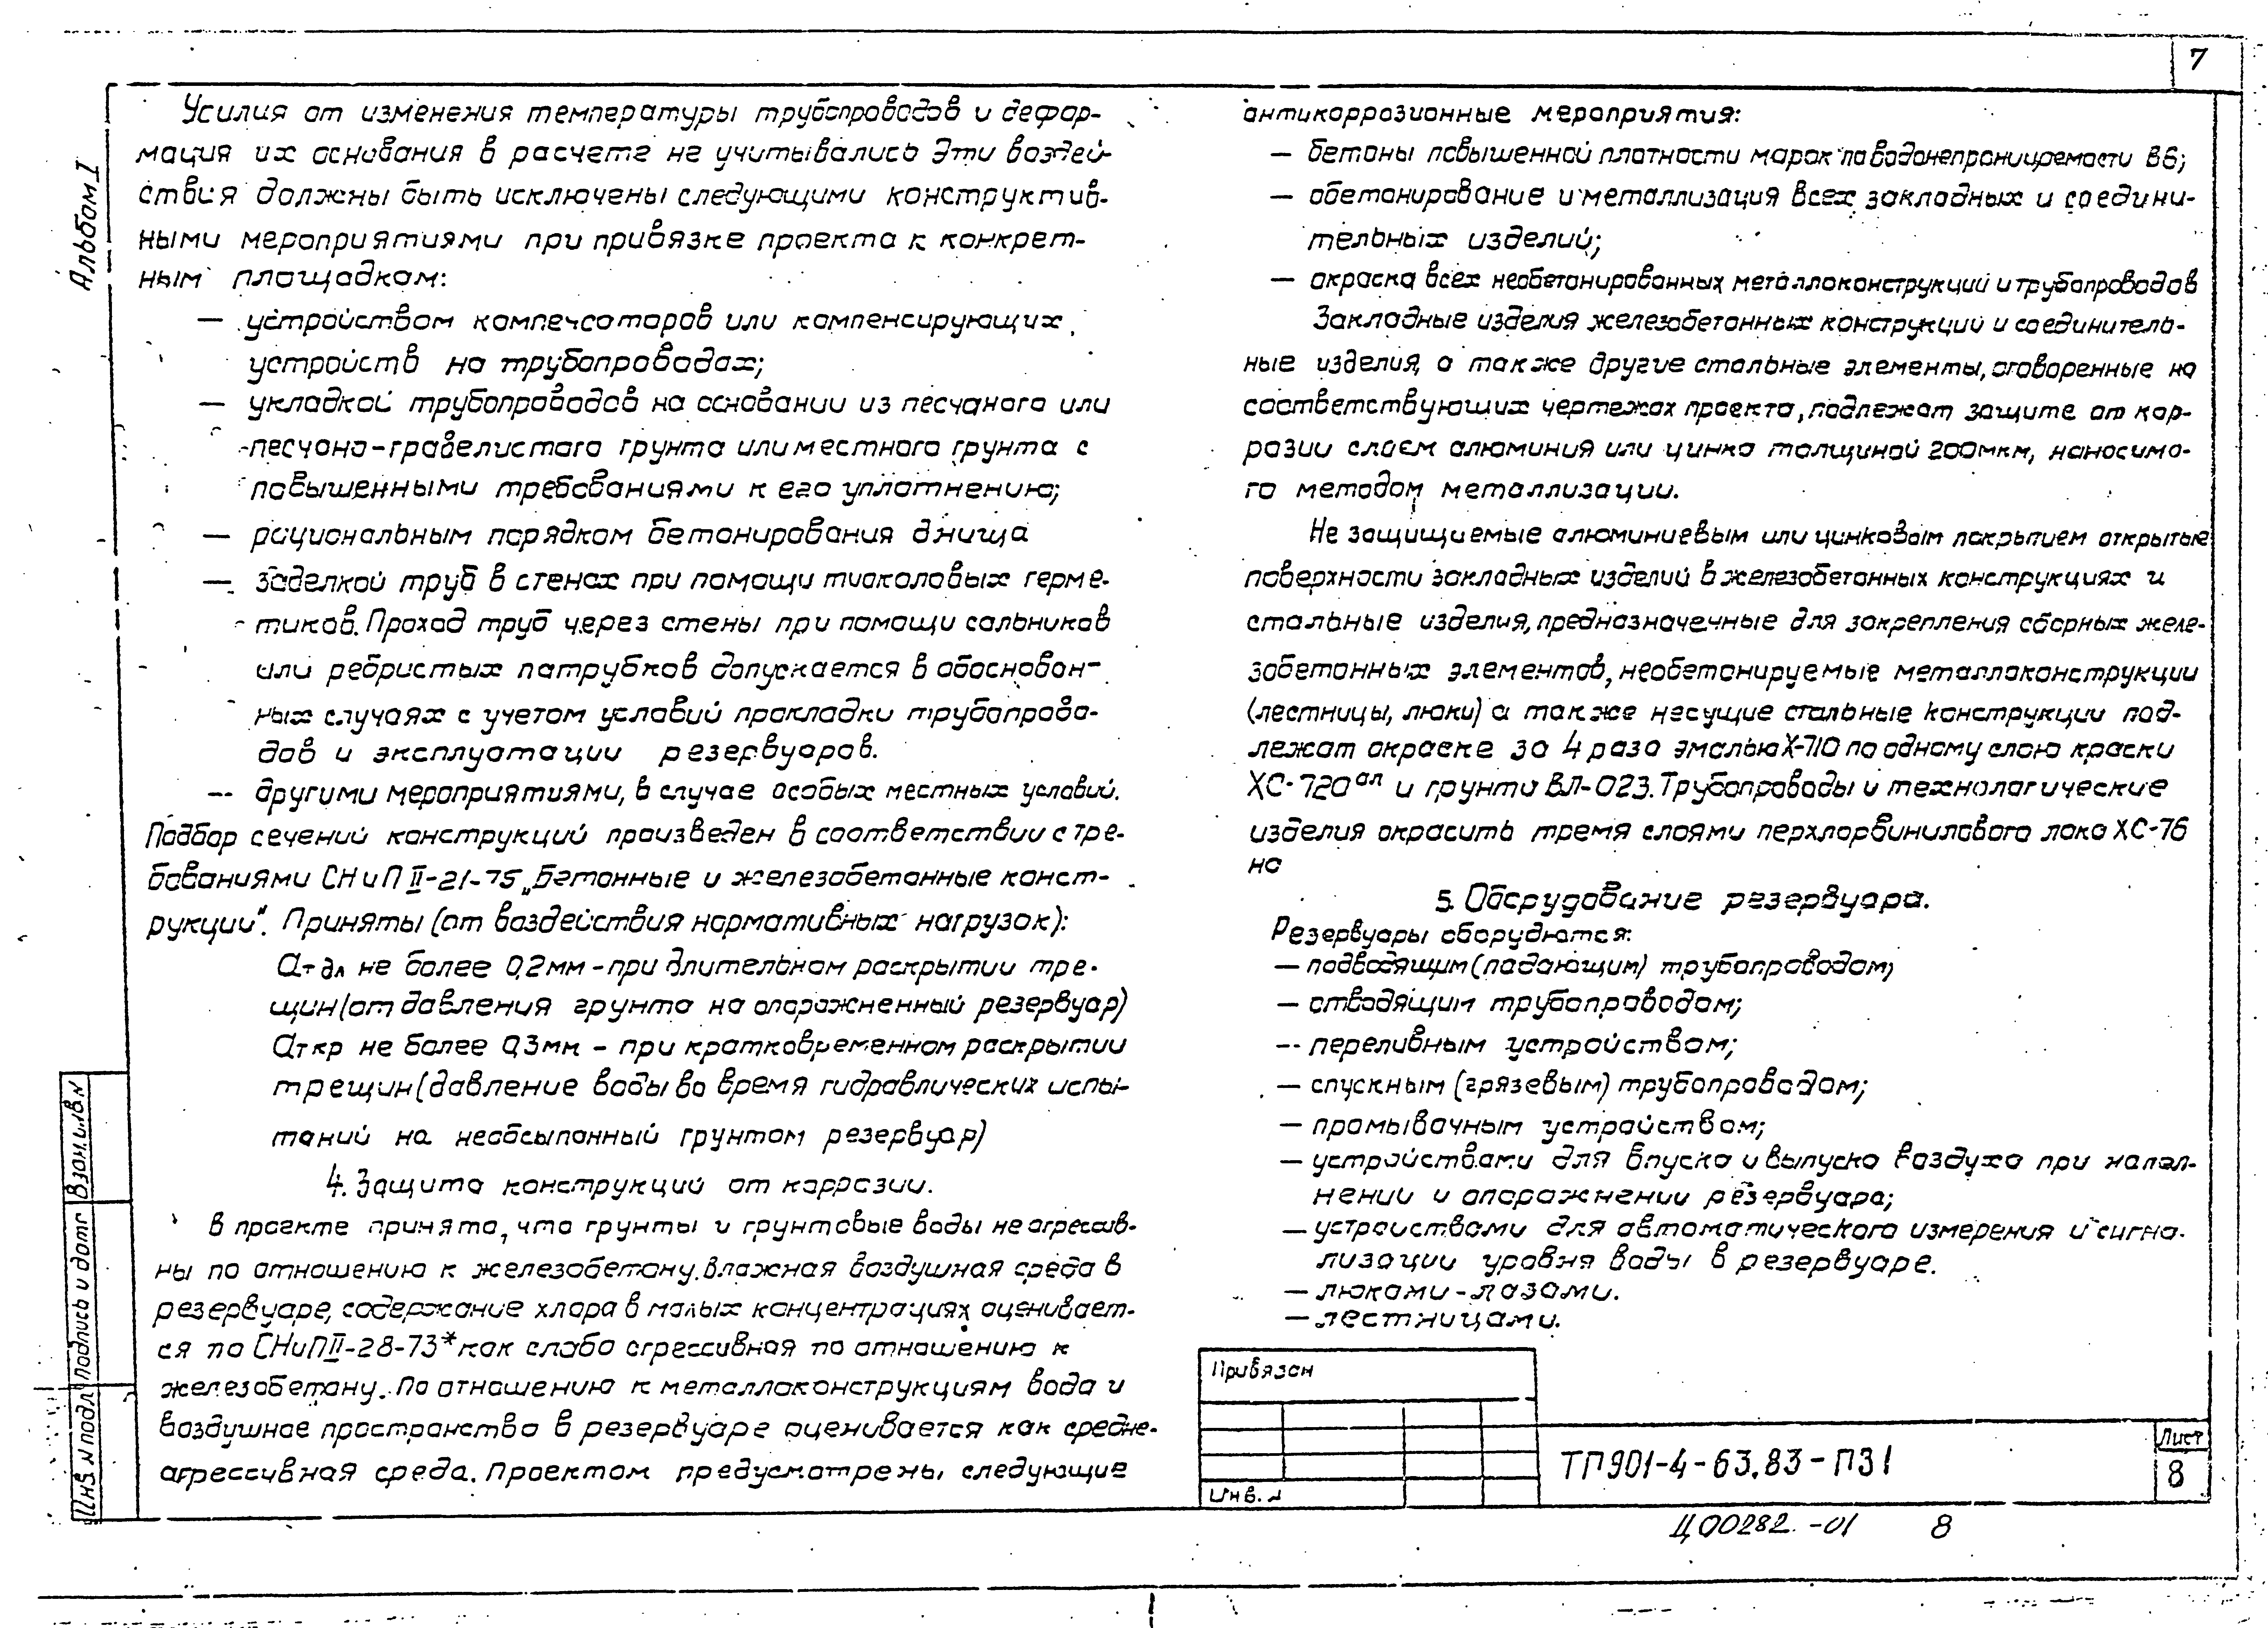 7
Альбом I
Усилия от изменения температуры трубопроводов и дефор-
мация их основания в расчете не учитывались Эти воздей-
ствия должны быть исключены следующими конструктив-
ными мероприятиями при привязке проекта к конкрет-
ным площадкам:
— устройством компенсаторов или компенсирующих
устройств на трубопроводах;
— укладкой трубопроводов на основании из песчаного или
песчано-гравелистого грунта или местного грунта с
повышенными требованиями к его уплотнению;
— рациональным порядком бетонирования днища
— заделкой труб в стенах при помощи тиоколовых герме-
тиков. Проход труб через стены при помощи сальников
или ребристых патрубков допускается в обоснован-
ных случаях с учетом условий прокладки трубопрово-
дов и эксплуатации резервуаров.
-- другими мероприятиями, в случае особых местных условий.
Подбор сечений конструкций произведен в соответствии с тре-
бованиями СНиП II-21-75 „Бетонные и железобетонные конст-
рукции". Приняты (от воздействия нормативных нагрузок):
ат дл не более 0,2мм - при длительном раскрытии тре-
щин (от давления грунта на опорожненный резервуар)
ат кр не более 0,3мм - при кратковременном раскрытии
трещин (давление воды во время гидравлических испы-
таний на необсыпанный грунтом резервуар)
4. Защита конструкций от коррозии.
В проекте принято, что грунты и грунтовые воды не агрессив-
ны по отношению к железобетону. Влажная воздушная среда в
резервуаре, содержание хлора в малых концентрациях оценивает-
ся по СНиП II-28-73* как слабо агрессивная по отношению к
железобетону. По отношению к металлоконструкциям вода и
воздушное пространство в резервуаре оценивается как средне-
агрессивная среда. Проектом предусмотрены следующие
антикоррозионные мероприятия:
— бетоны повышенной плотности марок по водонепроницаемости В6;
— обетонирование и металлизация всех закладных и соедини-
тельных изделий;
— окраска всех необетонированных металлоконструкций и трубопроводов
Закладные изделия железобетонных конструкций и соединитель-
ные изделия, а также другие стальные элементы, оговоренные на
соответствующих чертежах проекта, подлежат защите от кор-
розии слоем алюминия или цинка толщиной 200мкм, наносимо-
го методом металлизации.
Не защищаемые алюминиевым или цинковым покрытием открытые
поверхности закладных изделий в железобетонных конструкциях и
стальные изделия, предназначенные для закрепления сборных желе-
зобетонных элементов, необетонируемые металлоконструкции
(лестницы, люки) а также несущие стальные конструкции под-
лежат окраске за 4 раза эмалью Х-710 по одному слою краски
ХС-720ал и грунти ВЛ-023. Трубопроводы и технологические
изделия окрасить тремя слоями перхлорвинилового лака ХС-76
на
5. Оборудование резервуара.
Резервуары оборудются:
— подводящим (подающим) трубопроводом;
— отводящим трубопроводом;
-- переливным устройством;
— спускным (грязевым) трубопроводом;
— промывочным устройством;
— устройствами для впуска и выпуска воздуха при напол-
нении и опорожнении резервуара;
— устройствами для автоматического измерения и сигна-
лизации уровня воды в резервуаре.
— люками-лазами.
— лестницами.
Привязан
Инв. N
ТП901-4-63.83-ПЗ1
Лист
8
Ц00282.-01 8
Взам. инв. N
Подпись и дата
Инв. N подл.